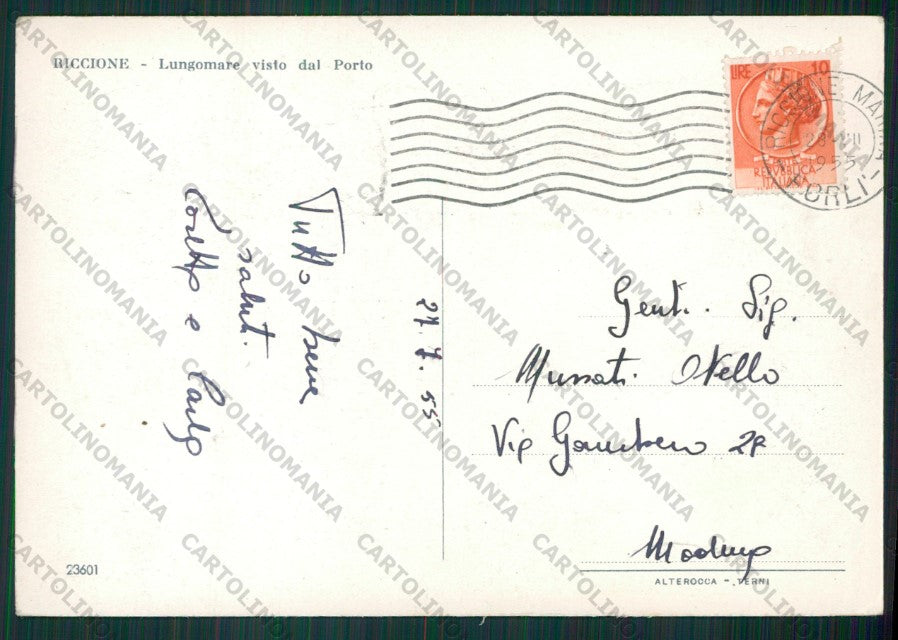 RICCIONE - Lungomare visto dal Porto
LIRE 10
REPUBBLICA
ITALIANA
RICCIONE MARINA
FORLI'
Tutto bene
saluti.
e Carlo
27. 7. 55
Gent. Sig.
Mussati Otello
Via Gambero
Modena
23601
ALTEROCCA - TERNI
CARTOLINOMANIA